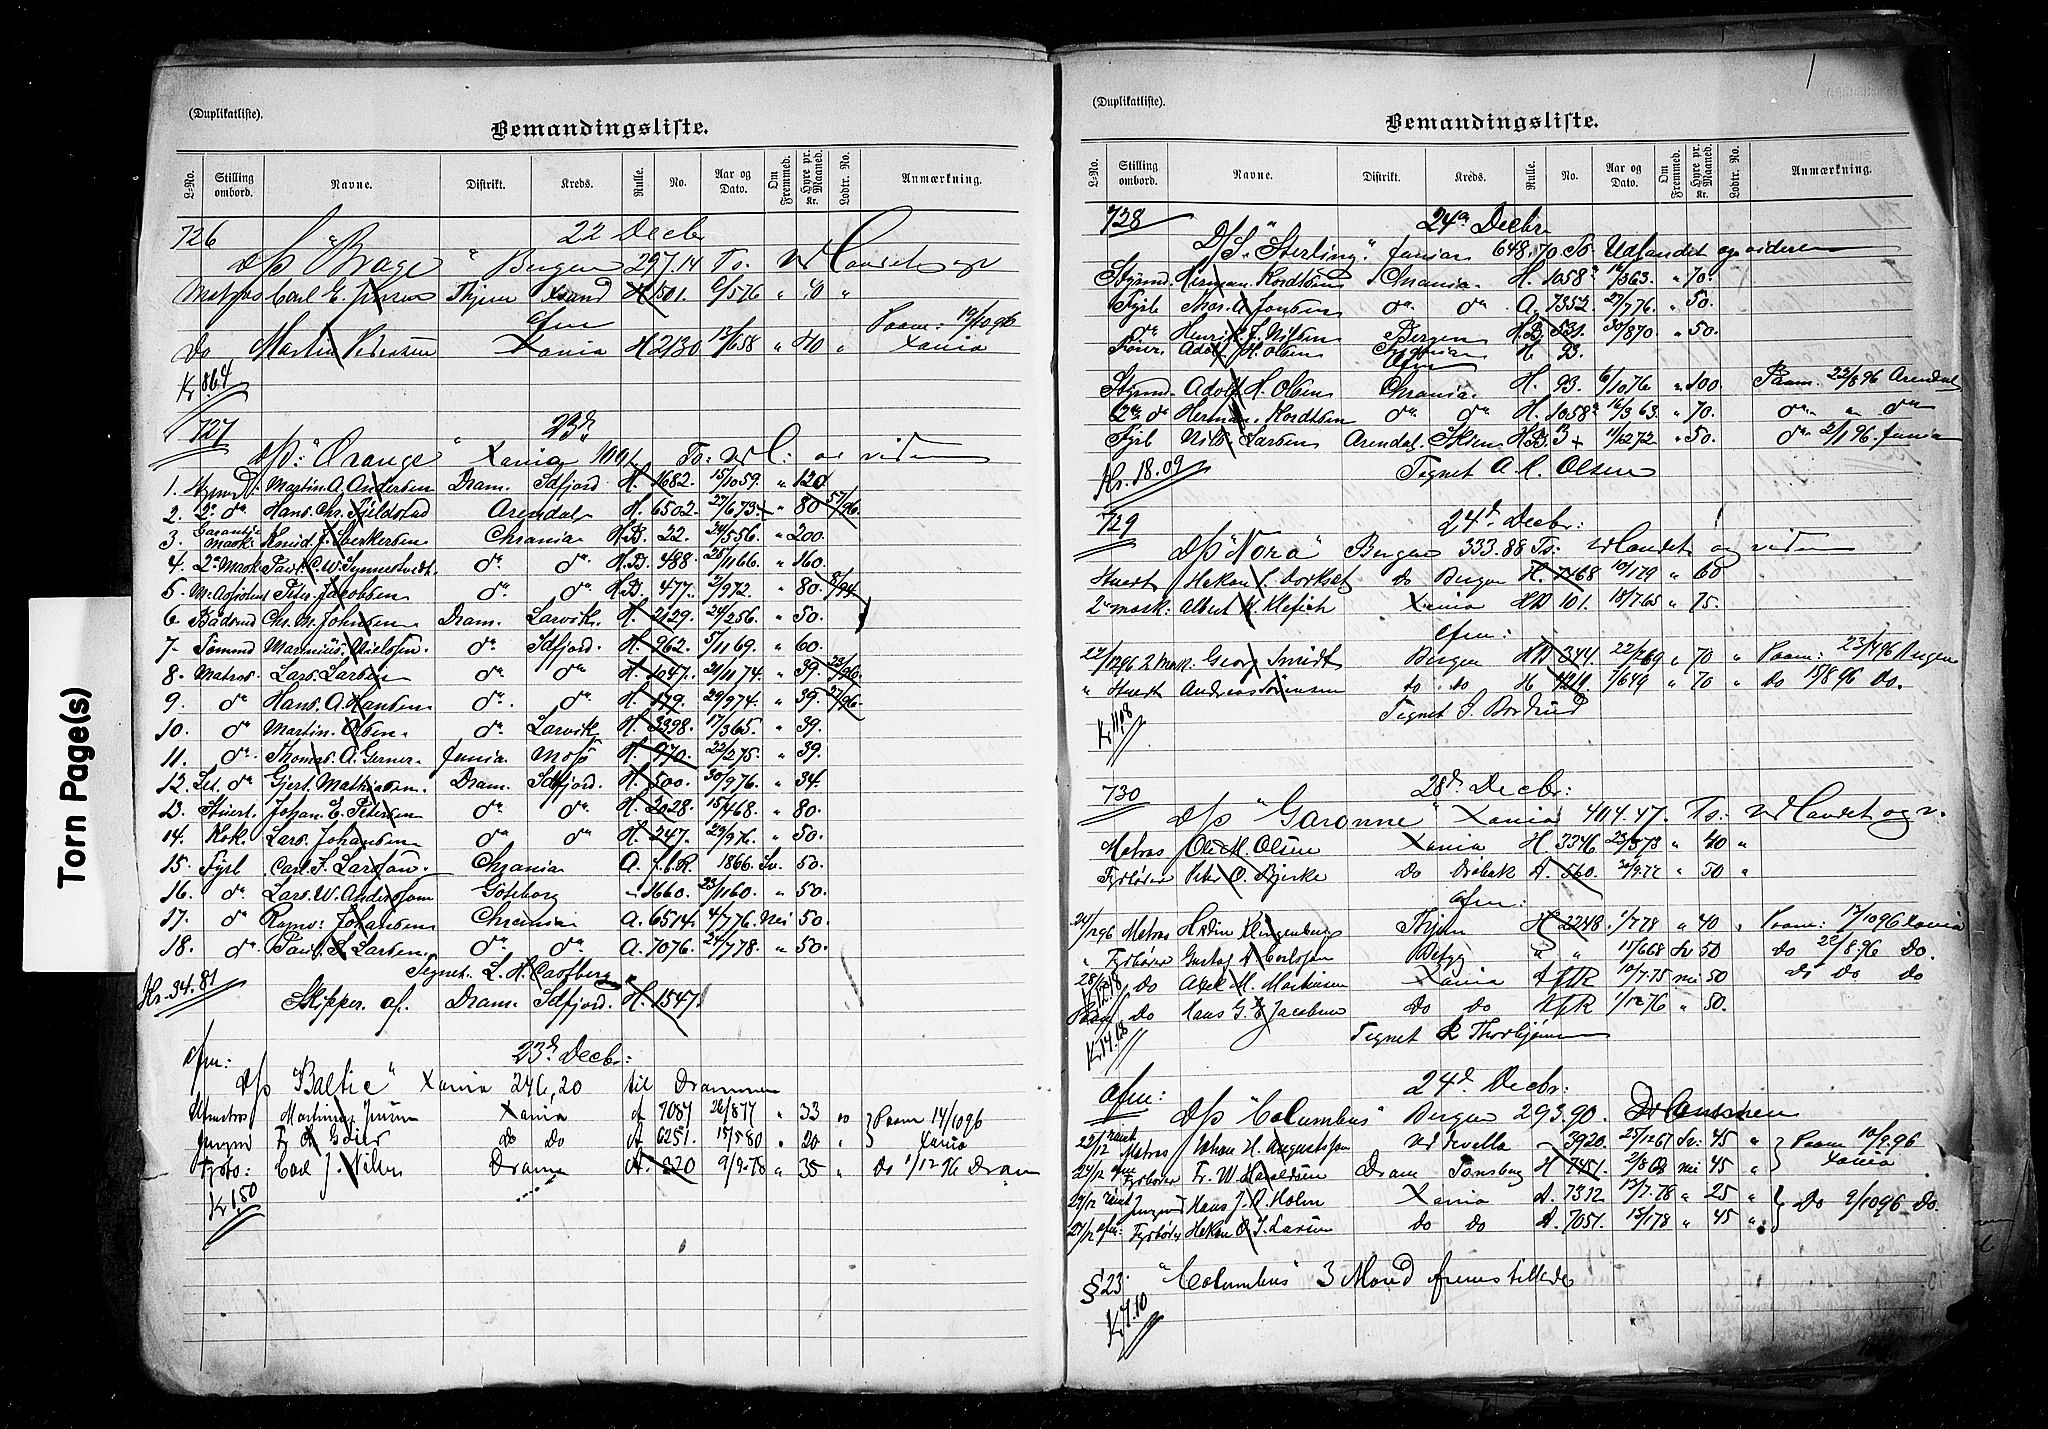 Torn Page(s)
(Duplikatliste).
Bemandingsliste.
L-No. Stilling ombord. Navne. Distrikt. Kreds. Rulle. No. Aar og Dato. Om Fremmed. Hyre pr. Maaned. Kr. Lodtr. No. Anmærkning.
726 22 Decbr
D/S "Brage" Bergen 297.14 To.
Matros Carl E. Thjem Xsand H 501. "
afm
Do Martin Pedersen Xania H 2130 12/658 " 40 " Paam: 19/1096 Xania
Kr 8.64
727 23d
D/S: "Orange" Xania To:
1. Styrmd: Martin. A. Andersen Dram. Idfjord. H. 1682. 15/1059. " 120
2. 2n do Hans. Chr. Fjeldstad Arendal H. 6502. 27/673. " 80 57/96.
3. Garanti Mask: Knud. J. Chrania H.B. 22. 24/556. " 200.
4. 2n Mask: Paul. C. W. Synnestvedt. do do H.B. 488. 25/1166. " 160.
5. M. Assistent Peter. Jacobsen do. do H.B. 477. 2/972. " 80. 8/94
6. Bådsmd Chr. M. Johnsen Dram. Larvik. H. 2129. 24/256. " 50.
7. Tømmd Marinius. Nielsen. do. Idfjord. H. 962. 5/1169. " 60.
8. Matros Lars. Larsen do do H. 1047. 21/1174. " 39.
9. do Hans. A. Hansen do. do. H. 179. 29/974. " 39. 27/96.
10. do Martin. Olsen. do. Larvik H. 3398. 17/365. " 39.
11. do. Thomas. A. Gerner. Fania Moss H. 970. 22/275. " 39.
12. Let. do Gjert. Mathiesen. Dram. Idfjord. H. 500. 30/976. " 34.
13. Stuert. Johan. E. Petersen do do. H. 2028. 15/468. " 80.
14. Kok. Lars. Johansen do do. H. 247. 23/976. " 50.
15. Fyrb Carl. F. Larsson. Chrania A. f.b.R. 1866. Sv. 50.
16. do. Lars. W. Andersson Göteborg - 1660. 23/1160. " 50.
17. do Ragnv: Johansen Chrania A. 6514. 4/776. Nei 50.
18. do. Paul. L. Larsen. do. do A. 7076. 24/778. " 50.
Tegnet. L. H. Carlberg
Kr. 34.81
Skipper af. Dram. Idfjord. H. 1547.
Afm: 23d Decbr:
D/S "Baltic" Xania 246,20 til Drammen
Martinius Xania A 7087 26/877 " 33 no } Paam 14/1096
Do Do A 6251. 15/580 " 20 " } Xania
Fyrbø: Carl J. Nilsen Dram A. 220 9/978 " 35 " Do 1/1296 Dram
Kr 1.50
1
(Duplikatliste).
Bemandingsliste.
L-No. Stilling ombord. Navne. Distrikt. Kreds. Rulle. No. Aar og Dato. Om Fremmed. Hyre pr. Maaned. Kr. Lodtr. No. Anmærkning.
728 24de Decbr.
D/S. "Sterling." Fania 648.70 To. Udlandet og videre
Styrmd. Herman. Nordtsen Chrania. H. 1058a 16/363. " 70.
Fyrb Thor. A. Jonsen do. do. A. 7352. 27/776. " 50.
do. Henrik. J. Nilsen Bergen H.B. 531. 30/870. " 50.
Adolf. H. Olsen H 93.
Afm
Styrmd. Adolf H. Olsen Chrania. H. 93. 6/1076 " 100 Paam. 22/896 Arendal
2n do Herman. Nordtsen do. do. H. 1058a 16/363. " 70. do. " do
Fyrb Nils. Larsen Arendal. Skien H.B. 3 + 11/1272 " 50. do. 2/196. Fania
Kr. 18.09 Tegnet A. H. Olsen
729 24d. Decbr:
D/S "Nora" Bergen 333.88 To: Udlandet og videre
Stuert Hakon S. Do Bergen H. 7468 10/179 " 60
2n mask: Albert Xania HB 101. 18/765 " 75.
Afm:
22/1296 2 Mask. Georg Smidt Bergen HB 344. 22/269 " 70 " Paam: 23/496 Bergen
" Stuert Andreas Sørensen do. do H 1/649 " 70 " Do 15/896 Do.
Tegnet
Kr 11.08
730 28d Decbr:
D/S "Garonne" Xania 4114.47. To: Udlandet og v.
Matros Ole M. Olsen Xania H 3346 23/573 " 40 "
Fyrbøder Peter O. Bjerke Do Drøbak A. 560. 30/977 " 50 "
Afm:
24/1296 Matros Klingenberg Thjem H 2248. 1/778 " 40 " Paam: 17/1096 Xania
" Fyrbøder Gustaf A. Carlsson " " 15/668 Sv 50 Do 22/896 Do.
28/12 Do Axel M. Martinsen Xania A f b R 10/775 nei 50 Do Do Do
Do Hans G. E Jacobsen Do Do A f b R 1/1276 " 50.
Kr 14.18 Tegnet R Thorbjørnsen
Afm: 24d. Decbr:
D/S "Columbus" Bergen 293.90. Drammen
22/12 Matros Johan H. Augustsson Uddevalla - 3920. 25/1267 Sv: 45 " } Paam 10/996
24/12 afm Fyrbøder Fr. W. Haraldsen Dram Tønsberg H 7451. 2/868 nei 45 " } Xania
24/12 Jungmd Hans J. R Holm Xania A. 7312 13/778 " 25 " } Do 9/1096 Do.
27/12 afm: Fyrbøder Hakon O. J. Larsen Do Do A. 7057. 13/178 " 45 " }
§ 23. "Columbus" 3 Mand fremstillede
Kr 7.10